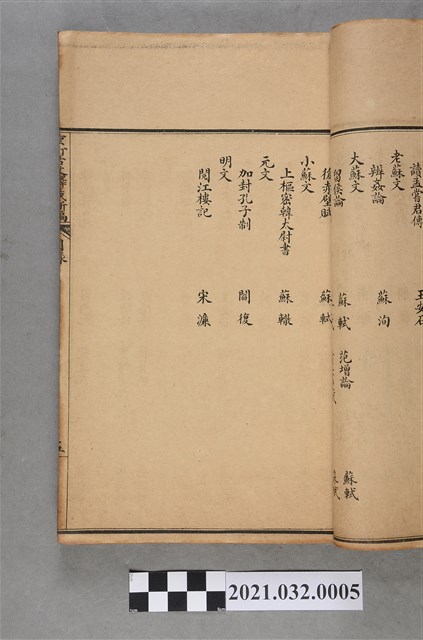 讀孟嘗君傳 王安石
老蘇文
辨姦論 蘇洵
大蘇文
留侯論 蘇軾 范增論 蘇軾
後赤壁賦 蘇軾
小蘇文
上樞密韓太尉書 蘇轍
元文
加封孔子制 閻復
明文
閱江樓記 宋濂
2021.032.0005